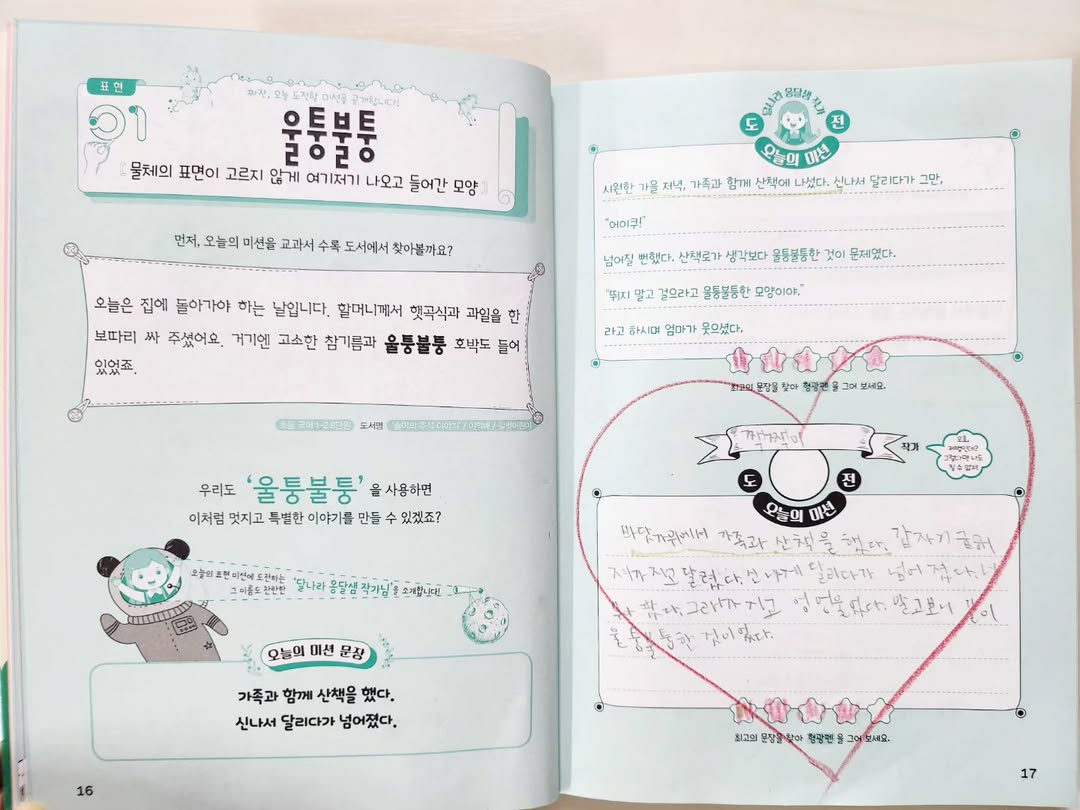 표현
01
짜잔, 오늘 도전할 미션을 공개합니다!
울퉁불퉁
[ 물체의 표면이 고르지 않게 여기저기 나오고 들어간 모양 ]
먼저, 오늘의 미션을 교과서 수록 도서에서 찾아볼까요?
오늘은 집에 돌아가야 하는 날입니다. 할머니께서 햇곡식과 과일을 한
보따리 싸 주셨어요. 거기엔 고소한 참기름과 울퉁불퉁 호박도 들어
있었죠.
도서명
우리도 '울퉁불퉁'을 사용하면
이처럼 멋지고 특별한 이야기를 만들 수 있겠죠?
오늘의 표현 미션에 도전하는
그 이름도 찬란한 '달나라 옹달샘 작가님'을 소개합니다!
오늘의 미션 문장
가족과 함께 산책을 했다.
신나서 달리다가 넘어졌다.
16
달나라 옹달샘 작가
도 전
오늘의 미션
시원한 가을 저녁, 가족과 함께 산책에 나섰다. 신나서 달리다가 그만,
"어이쿠!"
넘어질 뻔했다. 산책로가 생각보다 울퉁불퉁한 것이 문제였다.
"뛰지 말고 걸으라고 울퉁불퉁한 모양이야."
라고 하시며 엄마가 웃으셨다.
최고의 문장을 찾아 형광펜을 그어 보세요.
짹짹이
작가
오호,
재밌는데?
그렇다면 나도
질 수 없지!
도 전
오늘의 미션
바닷가위에서 가족과 산책을 했다. 갑자기 급해
져가지고 달렸다. 신나게 달리다가 넘어졌다.
그래가지고 엉엉울었다. 알고보니 길이
울퉁불퉁한 것이었다.
최고의 문장을 찾아 형광펜을 그어 보세요.
17